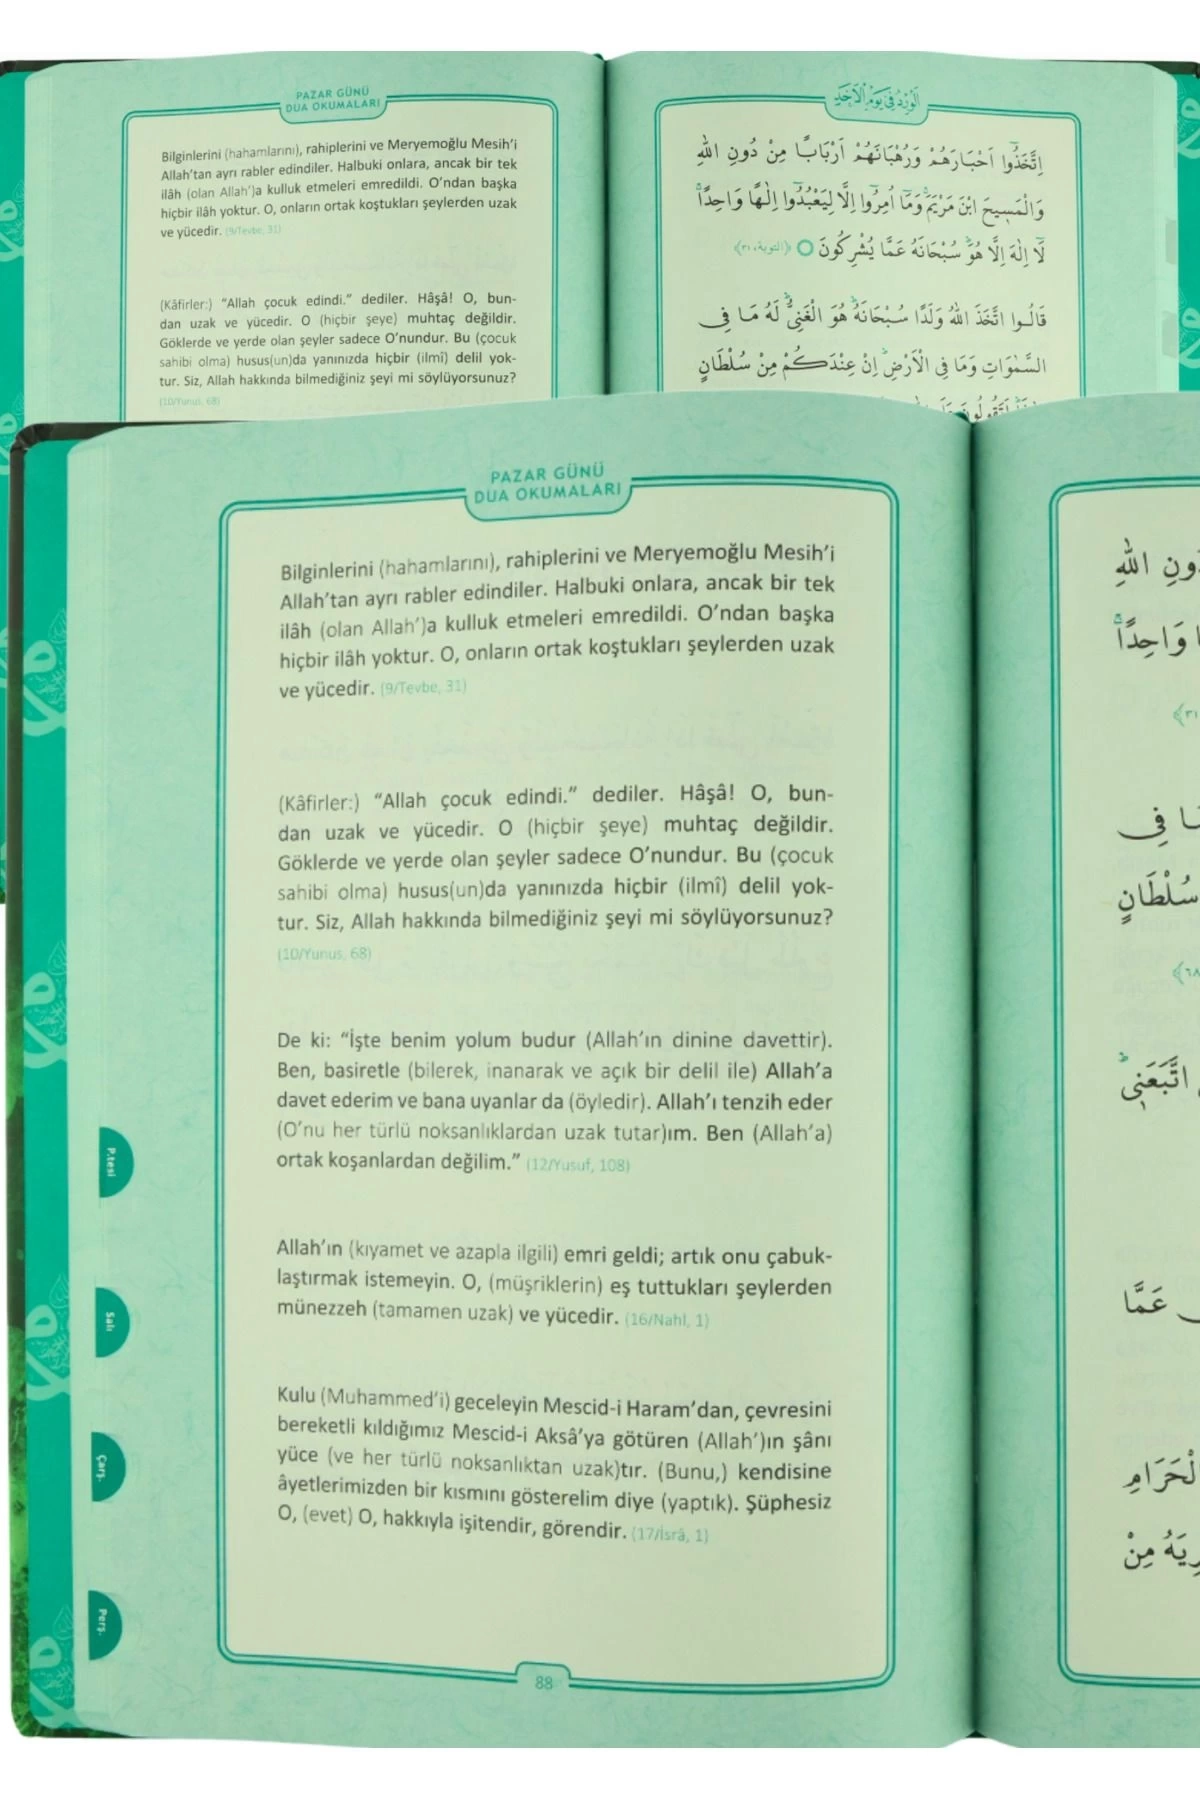 PAZAR GÜNÜ
DUA OKUMALARI
Bilginlerini (hahamlarını), rahiplerini ve Meryemoğlu Mesih’i
Allah’tan ayrı rabler edindiler. Halbuki onlara, ancak bir tek
ilâh (olan Allah’)a kulluk etmeleri emredildi. O’ndan başka
hiçbir ilâh yoktur. O, onların ortak koştukları şeylerden uzak
ve yücedir. (9/Tevbe, 31)
(Kâfirler:) “Allah çocuk edindi.” dediler. Hâşâ! O, bun-
dan uzak ve yücedir. O (hiçbir şeye) muhtaç değildir.
Göklerde ve yerde olan şeyler sadece O’nundur. Bu (çocuk
sahibi olma) husus(un)da yanınızda hiçbir (ilmî) delil yok-
tur. Siz, Allah hakkında bilmediğiniz şeyi mi söylüyorsunuz?
(10/Yunus, 68)
اَلْوِرْدُ فِي يَوْمِ الْاَحَدِ
اِتَّخَذُٓوا اَحْبَارَهُمْ وَرُهْبَانَهُمْ اَرْبَابًا مِنْ دُونِ اللّٰهِ
وَالْمَسٖيحَ ابْنَ مَرْيَمَۚ وَمَٓا اُمِرُٓوا اِلَّا لِيَعْبُدُٓوا اِلٰهًا وَاحِدًاۚ
لَٓا اِلٰهَ اِلَّا هُوَۜ سُبْحَانَهُ عَمَّا يُشْرِكُونَ ﴿التوبة، ٣١﴾
قَالُوا اتَّخَذَ اللّٰهُ وَلَدًا سُبْحَانَهُۜ هُوَ الْغَنِيُّۜ لَهُ مَا فِي
السَّمٰوَاتِ وَمَا فِي الْاَرْضِۜ اِنْ عِنْدَكُمْ مِنْ سُلْطَانٍ
PAZAR GÜNÜ
DUA OKUMALARI
Bilginlerini (hahamlarını), rahiplerini ve Meryemoğlu Mesih’i
Allah’tan ayrı rabler edindiler. Halbuki onlara, ancak bir tek
ilâh (olan Allah’)a kulluk etmeleri emredildi. O’ndan başka
hiçbir ilâh yoktur. O, onların ortak koştukları şeylerden uzak
ve yücedir. (9/Tevbe, 31)
(Kâfirler:) “Allah çocuk edindi.” dediler. Hâşâ! O, bun-
dan uzak ve yücedir. O (hiçbir şeye) muhtaç değildir.
Göklerde ve yerde olan şeyler sadece O’nundur. Bu (çocuk
sahibi olma) husus(un)da yanınızda hiçbir (ilmî) delil yok-
tur. Siz, Allah hakkında bilmediğiniz şeyi mi söylüyorsunuz?
(10/Yunus, 68)
De ki: “İşte benim yolum budur (Allah’ın dinine davettir).
Ben, basiretle (bilerek, inanarak ve açık bir delil ile) Allah’a
davet ederim ve bana uyanlar da (öyledir). Allah’ı tenzih eder
(O’nu her türlü noksanlıklardan uzak tutar)ım. Ben (Allah’a)
ortak koşanlardan değilim.” (12/Yusuf, 108)
Allah’ın (kıyamet ve azapla ilgili) emri geldi; artık onu çabuk-
laştırmak istemeyin. O, (müşriklerin) eş tuttukları şeylerden
münezzeh (tamamen uzak) ve yücedir. (16/Nahl, 1)
Kulu (Muhammed’i) geceleyin Mescid-i Haram’dan, çevresini
bereketli kıldığımız Mescid-i Aksâ’ya götüren (Allah’)ın şânı
yüce (ve her türlü noksanlıktan uzak)tır. (Bunu,) kendisine
âyetlerimizden bir kısmını gösterelim diye (yaptık). Şüphesiz
O, (evet) O, hakkıyla işitendir, görendir. (17/İsrâ, 1)
88
P.tesi
Salı
Çarş.
Perş.
دُونِ اللّٰهِ
وَاحِدًاۚ
٣١﴾
مَا فِي
سُلْطَانٍ
٦٨﴾
اتَّبَعَنٖيۜ
عَمَّا
الْحَرَامِ
مِنْ